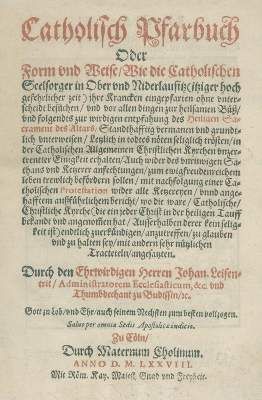 Catholisch Pfarbuch
Oder
Form vnd Weise/ Wie die Catholischen
Seelsorger in Ober vnd Niderlausitz (itziger hoch
gefehrlicher zeit) ihre Krancken eingepfarten ohne vnter-
schedt besuchen/ vnd vor allen dingen zur heilsamen Büß/
vnd folgendts zur wirdigen empfahung des Heiligen Sa-
crament des Altars, Standthafftig vermanen vnd gründt-
lich vnterweisen/ Letzlich in todtes nöten seliglich trösten/ in
der Catholischen Allgemeinen Christlichen Kyrchen vnzer-
trenneter Einigkeit erhalten/ Auch wider des vnruwigen Sa-
thans vnd Ketzerer anfechtungen/ zum ewigfreudenreichem
leben trewlich befördern sollen/ mit nachfolgung einer Ca-
tholischen Protestation wider alle Ketzereyen/ vnnd ange-
hafftem außführlichem bericht/ wo die ware/ Catholische/
Christliche Kyrche (die ein jeder Christ in der heiligen Tauff
bekandt vnd angenommen hat/ Ausserhalben derer kein selig-
keit ist) endtlich zuerkündigen/ anzutreffen/ zu glauben
vnd zu halten sey/ mit andern sehr nützlichen
Tracteteln/ angefangen.
Durch den Ehrwirdigen Herren Johan. Leisen-
trit/ Administratorem Ecclesiasticum, &c. vnd
Thumbdechant zu Budissin/ &c.
Gott zu lob/ vnd Ehr/ auch seinem Nechsten zum besten vollzogen.
Saluo per omnia Sedis Apostolicæ iudicio.
Zu Cöln/
Durch Maternum Cholinum.
ANNO D. M. LXXVIII.
Mit Röm. Kay. Maiest. Gnad vnd Freyheit.